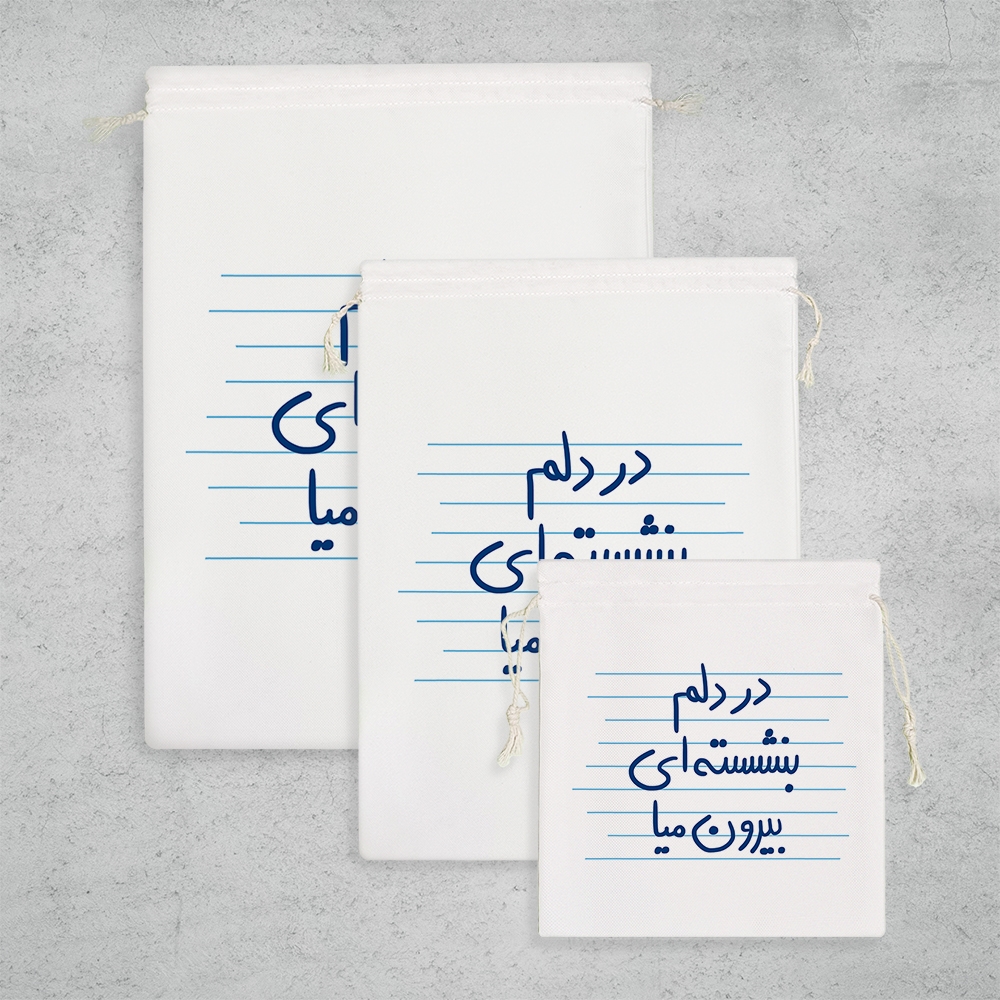 ای
میا
در دلم
بنشسته‌ای
میا
در دلم
بنشسته‌ای
بیرون میا